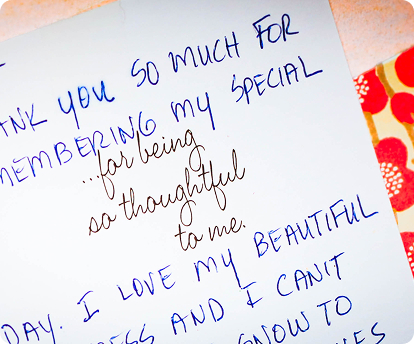 ANK YOU SO MUCH FOR
MEMBERING MY SPECIAL
...for being
so thoughtful
to me.
DAY. I LOVE MY BEAUTIFUL
ESS AND I CAN'T
SNOW TO